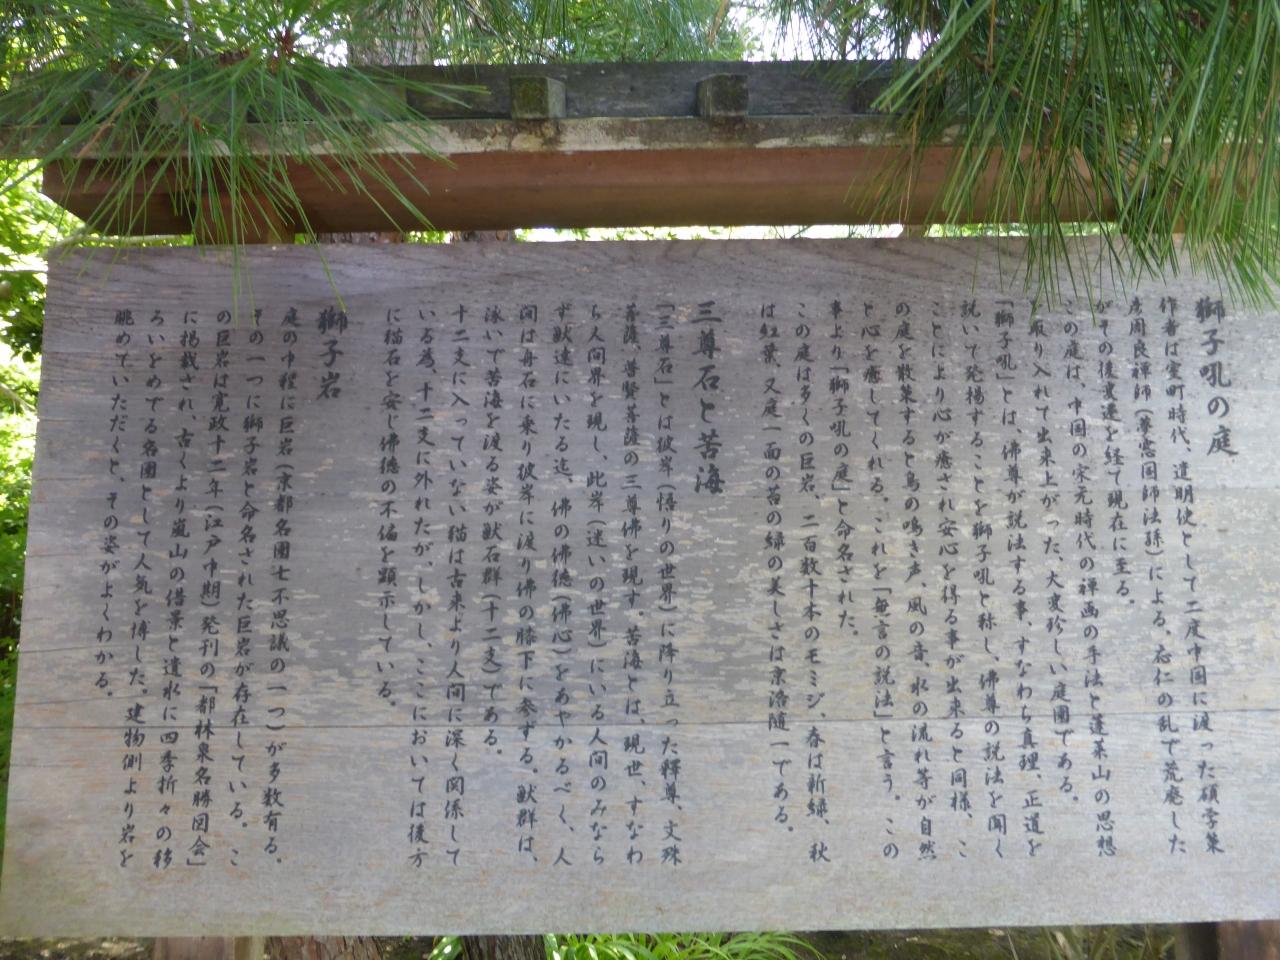 獅子吼の庭
作者は室町時代、遣明使として二度中国に渡った碩学策
彦周良禅師(夢窓国師法孫)による。応仁の乱で荒廃した
がその後変遷を経て現在に至る。
この庭は、中国の宋元時代の禅画の手法と蓬莱山の思想
を取り入れて出来上がった、大変珍しい庭園である。
「獅子吼」とは、佛尊が説法する事、すなわち真理、正道を
説いて発揚することを獅子吼と称し、佛尊の説法を聞く
ことにより心が癒され安心を得る事が出来ると同様、こ
の庭を散策すると鳥の鳴き声、風の音、水の流れ等が自然
と心を癒してくれる。これを「無言の説法」と言う。この
事より「獅子吼の庭」と命名された。
この庭は多くの巨岩、二百数十本のモミジ、春は新緑、秋
は紅葉、又庭一面の苔の緑の美しさは京洛随一である。
三尊石と苦海
「三尊石」とは彼岸(悟りの世界)に降り立った釋尊、文殊
菩薩、普賢菩薩の三尊佛を現す。苦海とは、現世、すなわ
ち人間界を現し、此岸(迷いの世界)にいる人間のみなら
ず獣達にいたる迄、佛の佛徳(佛心)をあやかるべく、人
間は舟石に乗り彼岸に渡り佛の膝下に参ずる。獣群は、
泳いで苦海を渡る姿が獣石群(十二支)である。
十二支に入っていない猫は古来より人間に深く関係して
いる為、十二支に外れたが、しかし、ここにおいては後方
に猫石を安じ佛徳の不偏を顕示している。
獅子岩
庭の中程に巨岩(京都名園七不思議の一つ)が多数有る。
その一つに獅子岩と命名された巨岩が存在している。こ
の巨岩は寛政十二年(江戸中期)発刊の「都林泉名勝図会」
に掲載され、古くより嵐山の借景と遣水に四季折々の移
ろいをめでる名園として人気を博した。建物側より岩を
眺めていただくと、その姿がよくわかる。